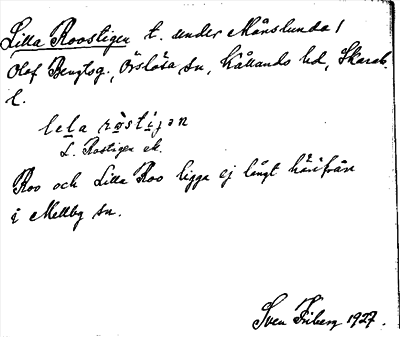 Lilla Roostigen t. under Månslunda 1
Olof Bengtsg., Örslösa sn, Kållands hd, Skarab.
l.
lela röstijən
L. Rostigen ek.
Roo och Lilla Roo ligga ej långt härifrån
i Mellby sn.
Sven Friberg 1927.